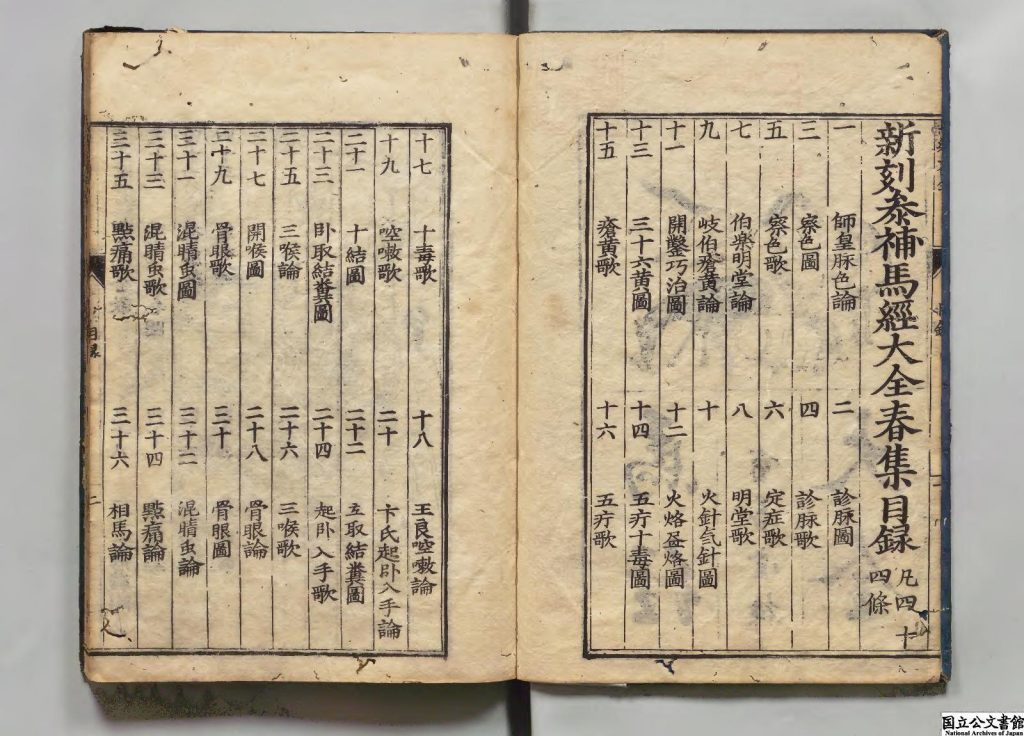 新刻叅補馬經大全春集目録 凡四十四條
一 師皇脉色論 二 診脉圖
三 察色圖 四 診脉歌
五 察色歌 六 定症歌
七 伯樂明堂論 八 明堂歌
九 岐伯瘡黄論 十 火針氣針圖
十一 開鑿巧治圖 十二 火烙盃烙圖
十三 三十六黄圖 十四 五疔十毒圖
十五 瘡黄歌 十六 五疔歌
十七 十毒歌 十八 王良啌嗽論
十九 啌嗽歌 二十 卞氏起卧入手論
二十一 十結圖 二十二 立取結糞圖
二十三 卧取結糞圖 二十四 起卧入手歌
二十五 三喉論 二十六 三喉歌
二十七 開喉圖 二十八 骨眼論
二十九 骨眼歌 三十 骨眼圖
三十一 混睛虫圖 三十二 混睛虫論
三十三 混睛虫歌 三十四 點痛論
三十五 點痛歌 三十六 相馬論
目録
二
国立公文書館
National Archives of Japan